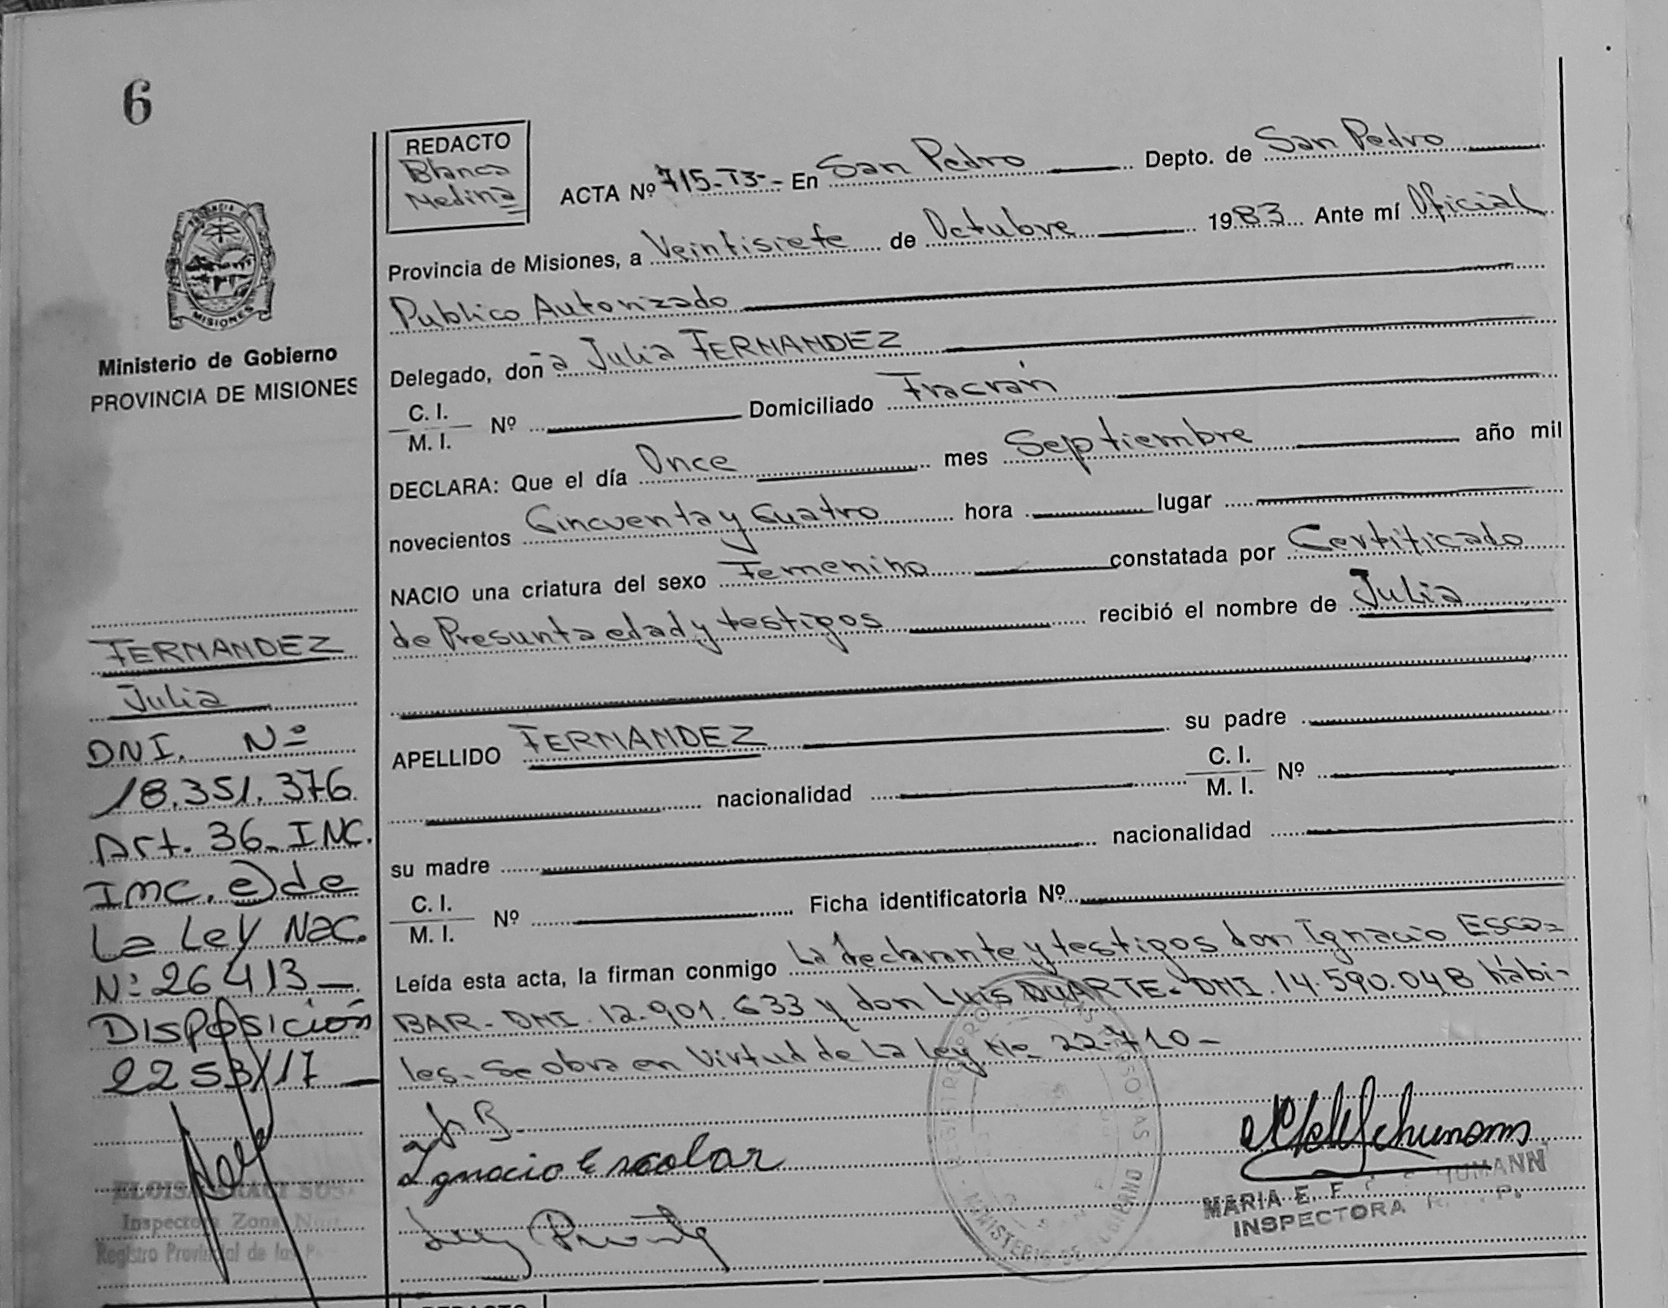 6
REDACTO
Blanca
Medina
ACTA Nº 715-T3- En San Pedro Depto. de San Pedro
Provincia de Misiones, a Veintisiete de Octubre 1983 Ante mí Oficial
Publico Autorizado
Delegado, doña Julia FERNANDEZ
C. I.
M. I. Nº Domiciliado Fracrán
DECLARA: Que el día Once mes Septiembre año mil
novecientos Cincuenta y Cuatro hora lugar
NACIO una criatura del sexo Femenino constatada por Certificado
de Presunta edad y testigos recibió el nombre de Julia
APELLIDO FERNANDEZ su padre
nacionalidad C. I.
M. I. Nº
su madre nacionalidad
C. I.
M. I. Nº Ficha identificatoria Nº
Leída esta acta, la firman conmigo La declarante y testigos don Ignacio ESCO=
BAR- DNI. 12.901.633 y don Luis DUARTE- DNI. 14.590.048 hábi-
les. Se obra en Virtud de La ley Nº 22.710-
Ignacio Escolar
MARIA E. F.
INSPECTORA
MISIONES
Ministerio de Gobierno
PROVINCIA DE MISIONES
FERNANDEZ
Julia
DNI. Nº
18.351.376
Art. 36- INC.
INC. e) de
La Ley Nac.
Nº 26413-
DISPOSICIÓN
2253/17-
ELOISA
Inspectora Zona
Registro Provincial de las
REDACTO